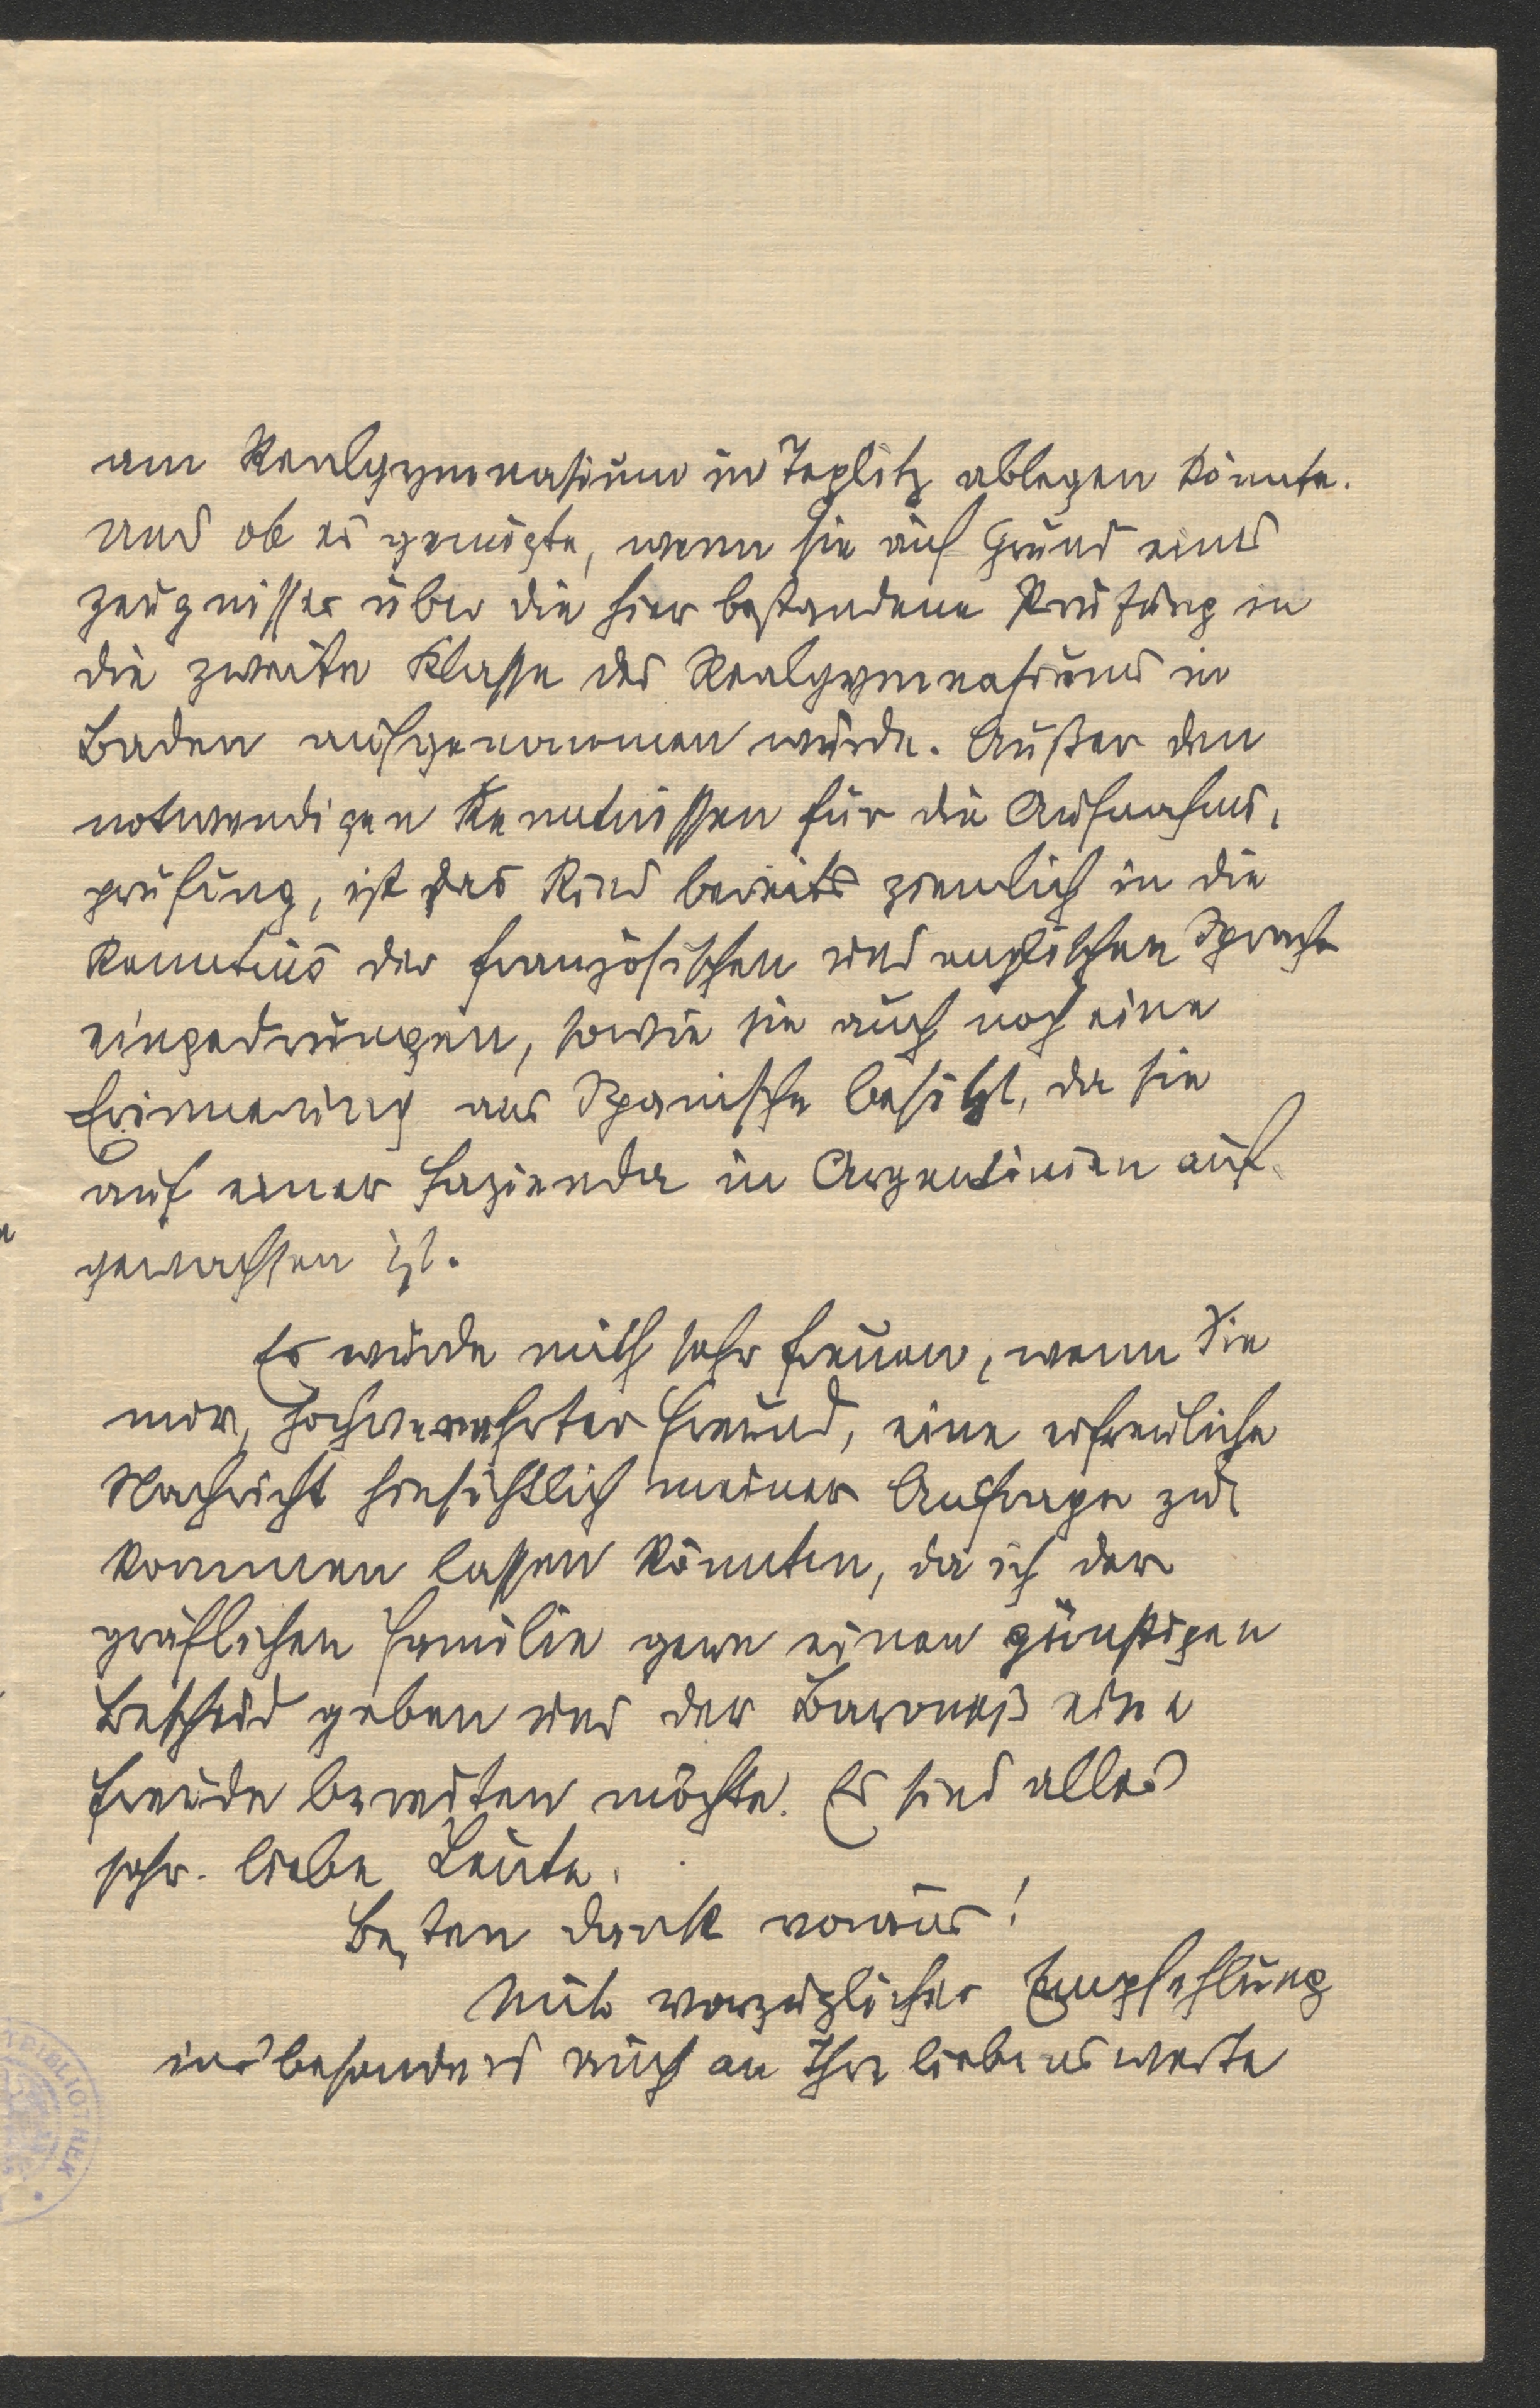 am Realgymnasium in Teplitz ablegen könnte.
und ob es genügte, wenn sie auf Grund eines
Zeugnisses über die hier bestandene Prüfung in
die zweite Klasse des Realgymnasiums in
Baden aufgenommen würde. Außer den
notwendigen Kenntnissen für die Aufnahms-
prüfung, ist das Kind bereits ziemlich in die
Kenntnis der französischen und englischen Sprache
eingedrungen, sowie sie auch noch eine
Erinnerung ans Spanische besitzt, da sie
auf einer Hazienda in Argentinien auf-
gewachsen ist.
Es würde mich sehr freuen, wenn Sie
mir, hochverehrter Freund, eine erfreuliche
Nachricht hinsichtlich meiner Anfrage zu-
kommen lassen könnten, da ich der
gräflichen Familie gern einen günstigen
Bescheid geben und der Baroneß eine
Freude bereiten möchte. Es sind alles
sehr liebe Leute.
Besten Dank voraus!
Mit vorzüglicher Empfehlung
insbesonders auch an Ihre liebenswerte
BIBLIOTHEK